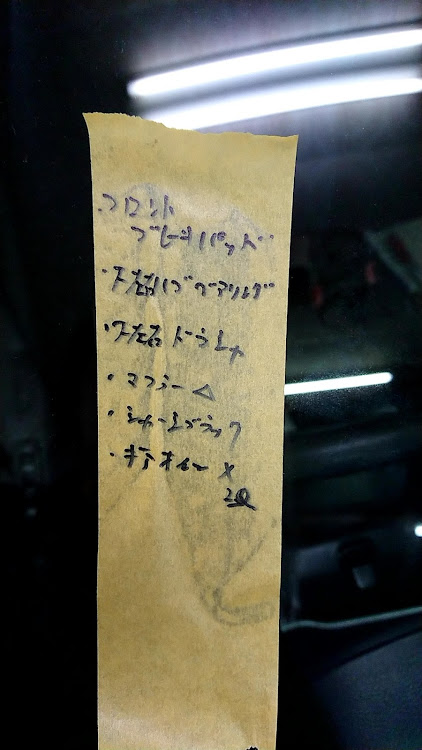 ・フロント
ブレーキパッド
・F左右ハブベアリング
・F左右ドラシャ
・マフラー△
・シャーシブラック
・ギアオイル ×
2ℓ